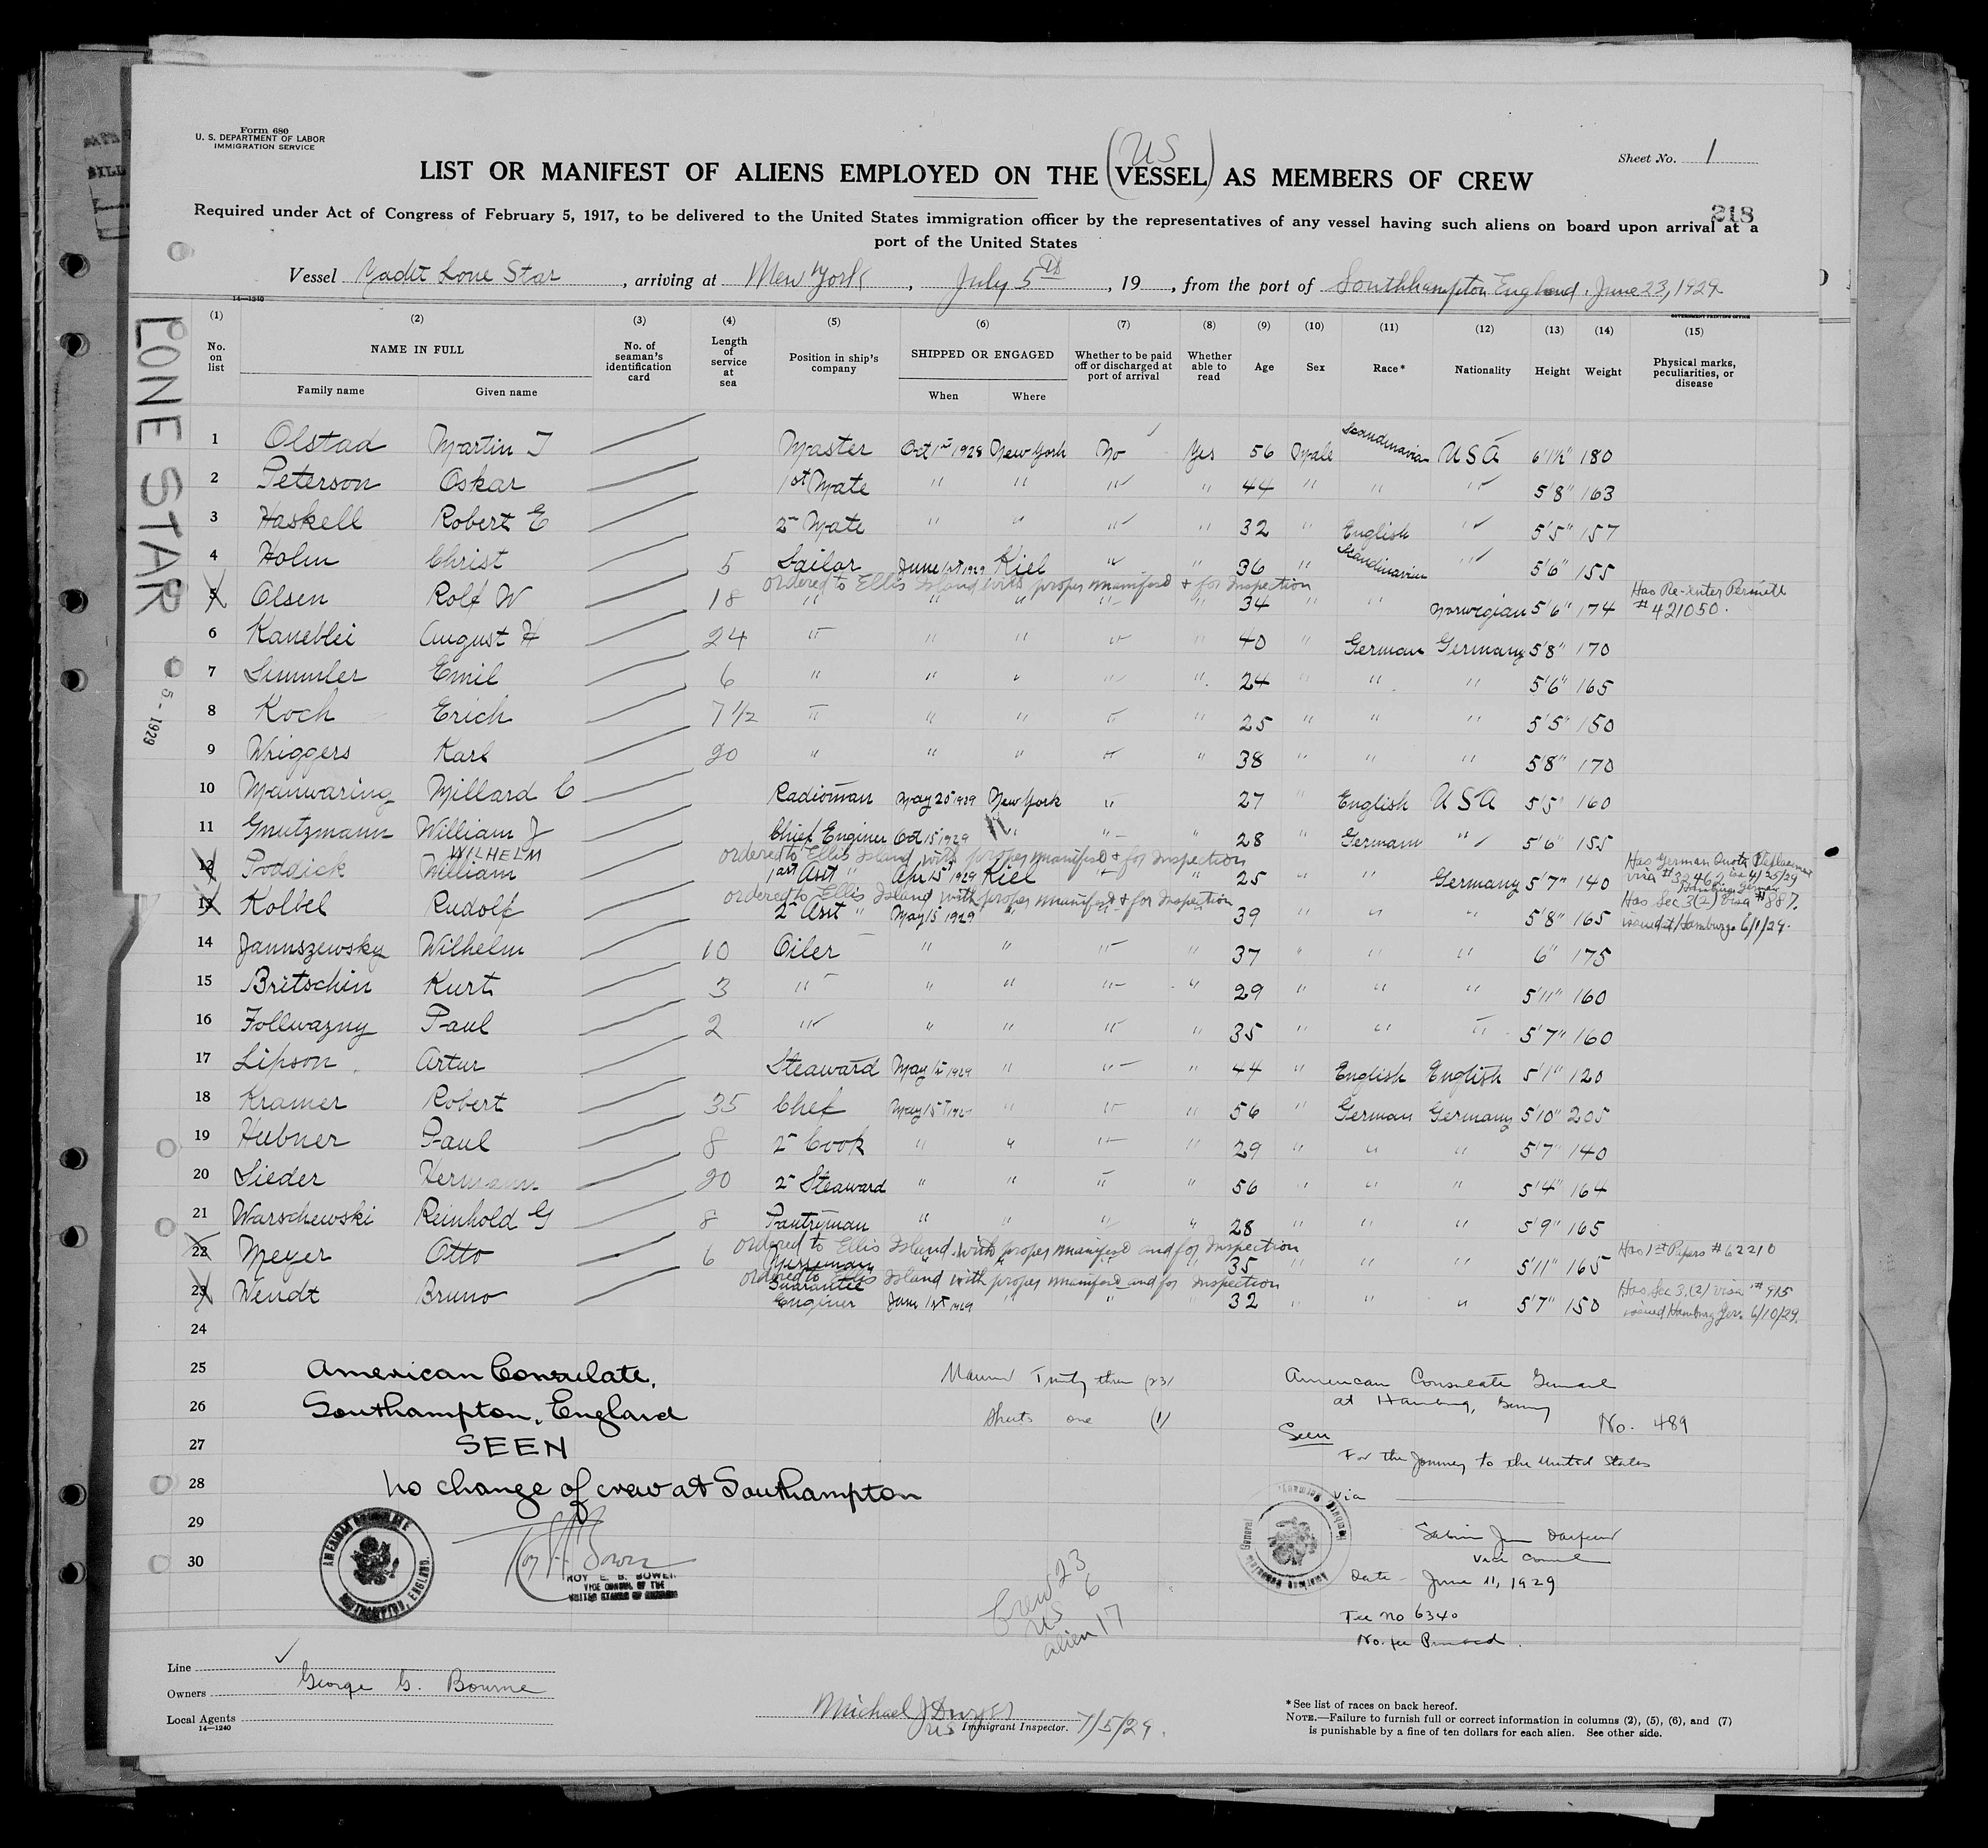 Form 680
U. S. DEPARTMENT OF LABOR
IMMIGRATION SERVICE
Sheet No. 1
US
LIST OR MANIFEST OF ALIENS EMPLOYED ON THE (VESSEL) AS MEMBERS OF CREW
218
Required under Act of Congress of February 5, 1917, to be delivered to the United States immigration officer by the representatives of any vessel having such aliens on board upon arrival at a
port of the United States
Vessel Yacht Lone Star, arriving at New York, July 5th, 19, from the port of Southhampton England. June 23, 1929
14—1240
GOVERNMENT PRINTING OFFICE
LONE STAR
5 - 1929
(1) (2) (3) (4) (5) (6) (7) (8) (9) (10) (11) (12) (13) (14) (15)
No. on list NAME IN FULL No. of seaman's identification card Length of service at sea Position in ship's company SHIPPED OR ENGAGED Whether to be paid off or discharged at port of arrival Whether able to read Age Sex Race* Nationality Height Weight Physical marks, peculiarities, or disease
Family name Given name When Where
1 Olstad Martin T Master Oct 1st 1928 New York No Yes 56 Male Scandinavian USA 6'1½" 180
2 Peterson Oskar 1st Mate " " " " 44 " " " 5'8" 163
3 Haskell Robert E 2 Mate " " " " 32 " English " 5'5" 157
4 Holm Christ 5 Sailor June 1st 1929 Kiel " " 36 " Scandinavian " 5'6" 155
ordered to Ellis Island with proper manifest & for Inspection
5 Olsen Rolf W 18 " " " " " 34 " " Norwegian 5'6" 174 Has Re-enter Permitt #421050.
6 Kaneblei August H 24 " " " " " 40 " German Germany 5'8" 170
7 Simmler Emil 6 " " " " " 24 " " " 5'6" 165
8 Koch Erich 7 1/2 " " " " " 25 " " " 5'5" 150
9 Wriggers Karl 20 " " " " " 38 " " " 5'8" 170
10 Manwaring Millard C Radioman May 20 1929 New York " 27 " English USA 5'5" 160
11 Gnutzmann William J Chief Enginer Oct 15 1929 " " " 28 " German " 5'6" 155
WILHELM
ordered to Ellis Island with proper manifest & for Inspection
12 Poddick William 1st Asst " Apr 15 1929 Kiel " " 25 " " Germany 5'7" 140 Has German Quota
4/25/29
ordered to Ellis Island with proper manifest & for Inspection
13 Kolbel Rudolf 2 Asst " May 15 1929 " " " 39 " " " 5'8" 165 Has Sec 3(2) visa #887. issued at Hamburg 6/1/29.
14 Januszewsky Wilhelm 10 Oiler " " " " 37 " " " 6" 175
15 Britschin Kurt 3 " " " " " 29 " " " 5'11" 160
16 Follwazny Paul 2 " " " " " 35 " " " 5'7" 160
17 Lipson Artur Steaward May 1st 1929 " " " 44 " English English 5'1" 120
18 Kramer Robert 35 Chef May 15 " " " 56 " German Germany 5'10" 205
19 Hubner Paul 8 2 Cook " " " " 29 " " " 5'7" 140
20 Sieder Hermann 20 2 Steaward " " " " 56 " " " 5'4" 164
21 Warschewski Reinhold G 8 Pantryman " " " " 28 " " " 5'9" 165
ordered to Ellis Island with proper manifest and for Inspection
22 Meyer Otto 6 Messman 35 " " " 5'11" 165 Has 1st Papers #62210
ordered to Ellis Island with proper manifest and for Inspection
23 Wendt Bruno Guarantee Enginer June 1st 1929 " " " 32 " " " 5'7" 150 Has Sec 3.(2) visa #915 issued Hamburg Ger. 6/10/29.
24
25 American Consulate,
26 Southampton, England
27 SEEN
28 no change of crew at Southampton
29
30
AMERICAN CONSULATE
SOUTHAMPTON, ENGLAND.
ROY E. B. BOWER
VICE CONSUL OF THE
UNITED STATES OF AMERICA
Twenty three (23)
Sheets one (1)
American Consulate General
at Hamburg, Germany
No. 489
Seen
For the Journey to the United States
Via
Vice Consul
Date June 11, 1929
Fee no 6340
No fee
Crew 23
US 6
alien 17
Line
Owners George G. Bourne
Local Agents
14—1240
Michael J Dwyer
US Immigrant Inspector. 7/5/29.
* See list of races on back hereof.
NOTE.—Failure to furnish full or correct information in columns (2), (5), (6), and (7)
is punishable by a fine of ten dollars for each alien. See other side.